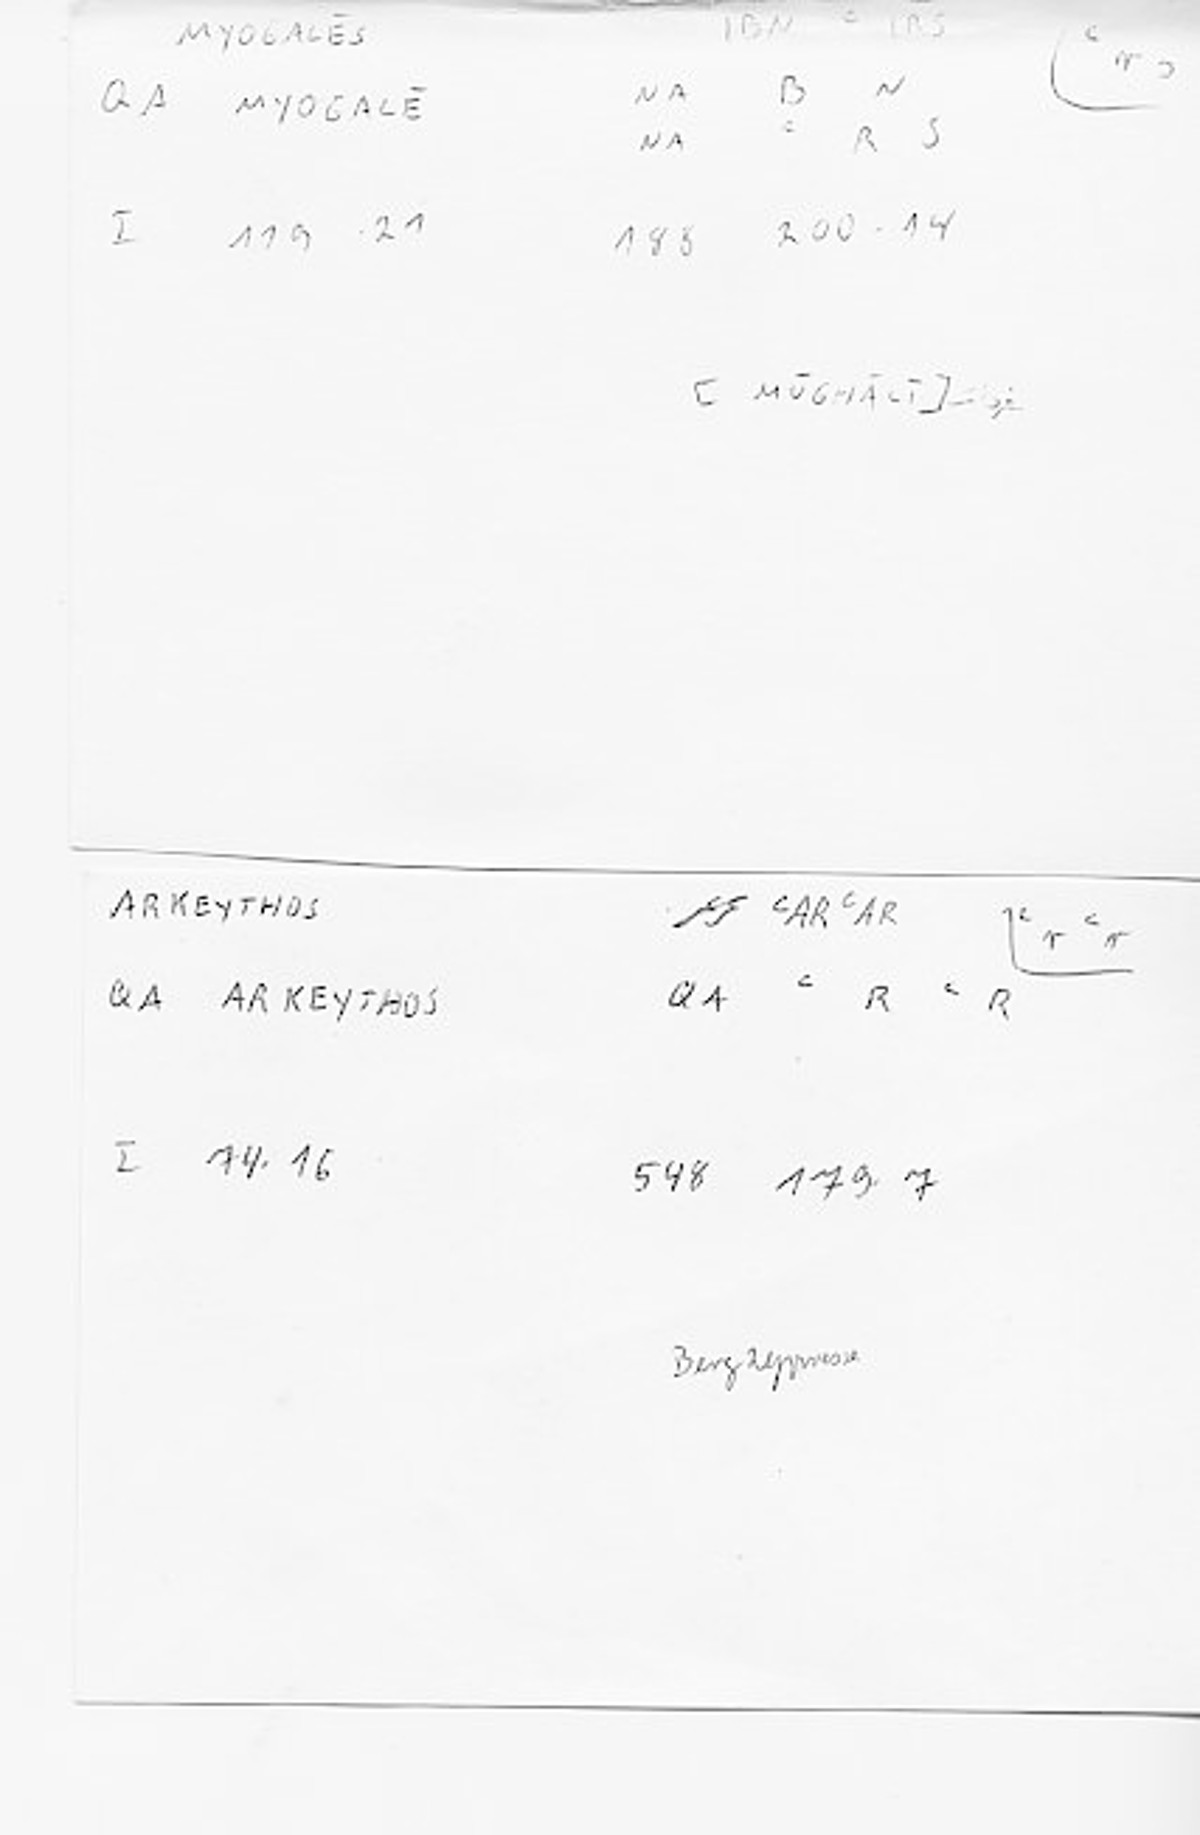 MYOGALĒS IBN ᶜIRS ᶜrs
QA MYOGALĒ NA B N
NA ᶜ R S
I 119 .21 188 200.14
[ MŪGHĀLĪ ]
ARKEYTHOS ᶜARᶜAR ᶜrᶜr
QA ARKEYTHOS QA ᶜ R ᶜ R
I 74.16 548 179.7
Bergzyppresse